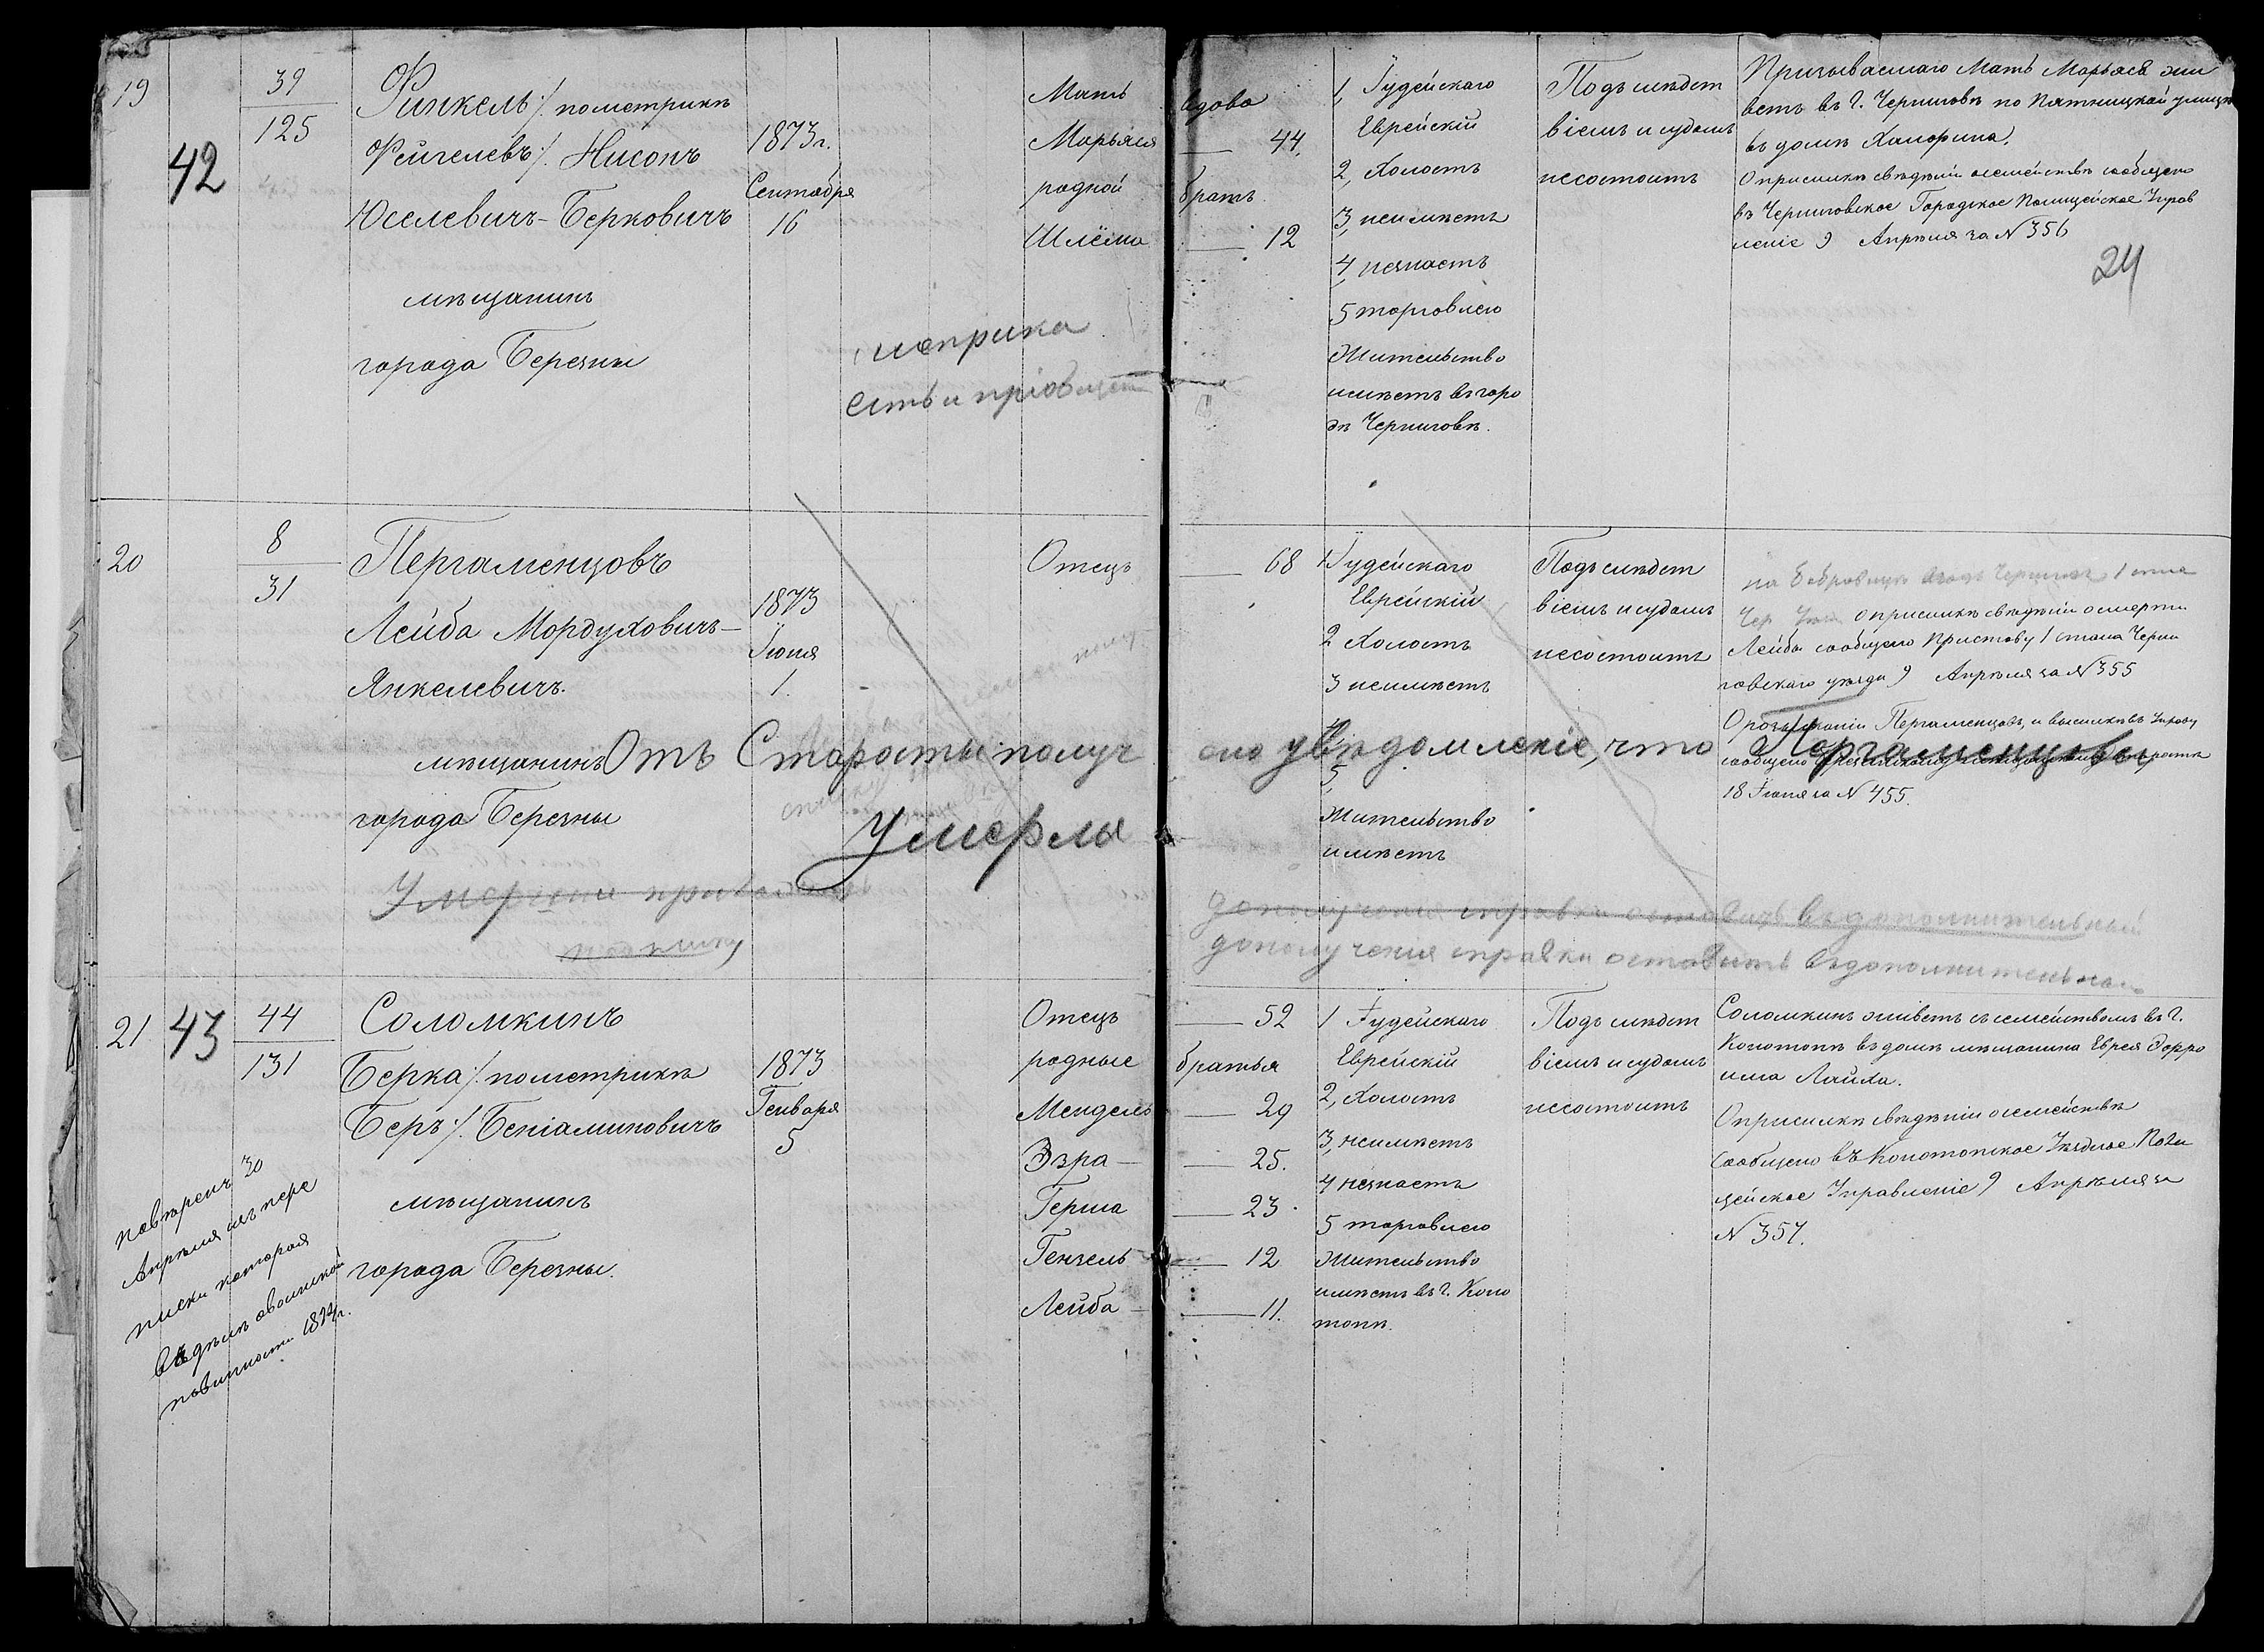 19
42
39
125
Финкель /: пометрикѣ
Фейгелевъ :/. Нисонъ
Юселевичъ-Берковичъ
мѣщанинъ
города Березны
1873 г.
Сентября
16
метрика
есть и пріобщена
Мать
Марьяся
родной
Шлёма
вдова
44.
братъ
12
1, Іудейскаго
Еврейскій
2, Холостъ
3, неимѣетъ
4, незнаетъ
5 торговлею
Жительство
имѣетъ въ горо
дѣ Черниговѣ.
Подъ слѣдст
віемъ и судомъ
несостоитъ
Призываемаго Мать Марьяся жи
ветъ въ г. Черниговѣ по Пятницкой улицѣ
въ домѣ
О присылкѣ свѣдѣній о семействѣ сообщено
въ Черниговское Городское Полицейское Управ
леніе 9 Апрѣля за № 356
24
20
8
31
Пергаменцовъ
Лейба Мордуховичъ-
Янкелевичъ.
мѣщанинъ
города Березны
1873
Іюня
1.
Отецъ
68
1 Іудейскаго
Еврейскій
2 Холостъ
3 неимѣетъ
4,
5,
Жительство
имѣетъ
Подъ слѣдст
віемъ и судомъ
несостоитъ
О присылкѣ свѣдѣній о смерти
Лейбы сообщено Приставу 1 стана Черни
говскаго уѣзда 9 Апрѣля за № 355
О розысканіи Пергаменцова, и высылкѣ въ Управу
сообщено
18 Іюня за № 455.
Отъ Старосты получ
ено увѣдомленіе, что Пергаменцовъ
Умерлъ
дополученія справки оставить въ дополнительный
дополученія справки оставить въ дополнительномъ
21
43
44
131
Соломкинъ
Берка /: пометрикѣ
Беръ :/. Беніаминовичъ
мѣщанинъ
города Березны.
1873
Генваря
5
повѣренъ 30
Апрѣля изъ пере
писки которая
въ дѣлѣ овоинской
повинности
Отецъ
родные
Мендель
Эзра
Герша
Гензель
Лейба
52
братья
29
25.
23.
12
11.
1 Іудейскаго
Еврейскій
2, Холостъ
3, неимѣетъ
4 незнаетъ
5 торговлею
Жительство
имѣетъ въ г. Коно
топѣ.
Подъ слѣдст
віемъ и судомъ
несостоитъ
Соломкинъ живетъ съ семействомъ въ г.
Конотопѣ въ домѣ мѣщанина Еврея
О присылкѣ свѣдѣній о семействѣ
сообщено въ Конотопское Уѣздное Поли
цейское Управленіе 9 Апрѣля за
№ 357.